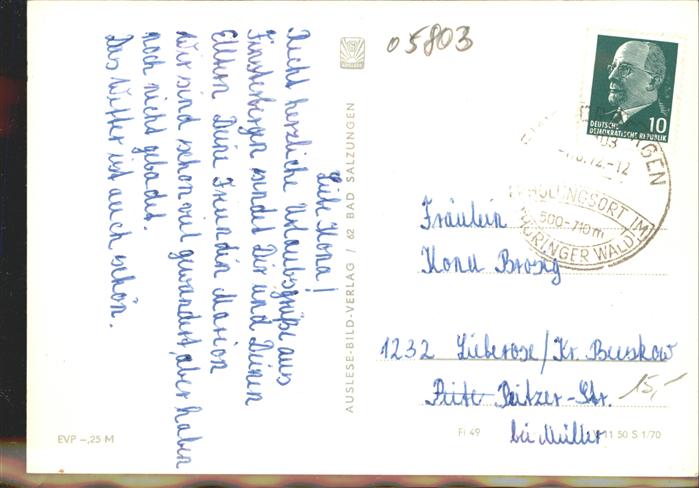 Liebe Kona!
Recht herzliche Urlaubsgrüße aus
Finsterbergen sendet Dir und Deinen
Eltern Deine Freundin Marion
Wir sind schon viel gewandert, aber haben
noch nicht gebadet.
Das Wetter ist auch schön.
05803
AUSLESE-BILD-VERLAG / 62 BAD SALZUNGEN
10
DEUTSCHE
DEMOKRATISCHE REPUBLIK
72.-12
ERHOLUNGSORT IM
500-710m
THÜRINGER WALD
Fräulein
Kona Brosig
1232 Lieberose/Kr. Beeskow
Peitzer-Str.
bei Müller
15,-
EVP -,25 M
FI 49
11 50 S 1/70